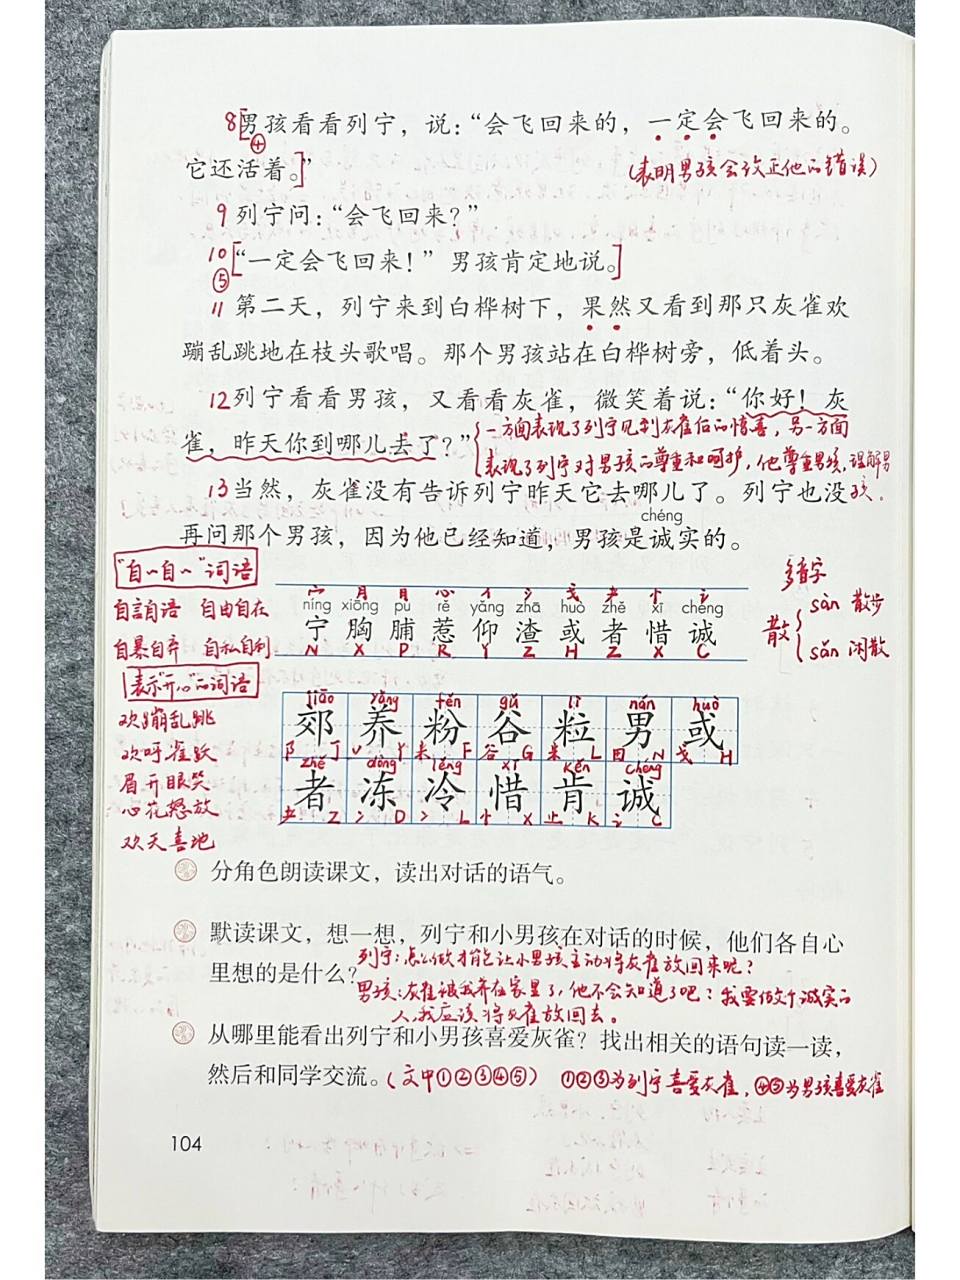 8[男孩看看列宁，说：“会飞回来的，一定会飞回来的。
④
它还活着。]”
(表明男孩会改正他的错误)
9 列宁问：“会飞回来？”
10[“一定会飞回来！”男孩肯定地说。]
⑤
11 第二天，列宁来到白桦树下，果然又看到那只灰雀欢
蹦乱跳地在枝头歌唱。那个男孩站在白桦树旁，低着头。
12 列宁看看男孩，又看看灰雀，微笑着说：“你好！灰
雀，昨天你到哪儿去了？”
一方面表现了列宁见到灰雀后的惊喜，另一方面
表现了列宁对男孩的尊重和呵护，他尊重男孩，理解男
孩.
13 当然，灰雀没有告诉列宁昨天它去哪儿了。列宁也没
chéng
再问那个男孩，因为他已经知道，男孩是诚实的。
“自~自~”词语
自言自语 自由自在
自暴自弃 自私自利
表示“开心”的词语
欢蹦乱跳
欢呼雀跃
眉开眼笑
心花怒放
欢天喜地
宀 月 月 心 亻 氵 戈 耂 忄 讠
níng xiōng pú rě yǎng zhā huò zhě xī chéng
宁 胸 脯 惹 仰 渣 或 者 惜 诚
N X P R Y Z H Z X C
多音字
散
sàn 散步
sǎn 闲散
jiāo yǎng fěn gǔ lì nán huò
郊 养 粉 谷 粒 男 或
阝 J 丷 Y 米 F 谷 G 米 L 田 N 戈 H
zhě dòng lěng xī kěn chéng
者 冻 冷 惜 肯 诚
耂 Z 冫 D 冫 L 忄 X 止 K 讠 C
分角色朗读课文，读出对话的语气。
默读课文，想一想，列宁和小男孩在对话的时候，他们各自心
里想的是什么？
列宁：怎么做才能让小男孩主动将灰雀放回来呢？
男孩：灰雀被我养在家里了，他不会知道了吧？我要做个诚实的
人，我应该将灰雀放回去。
从哪里能看出列宁和小男孩喜爱灰雀？找出相关的语句读一读，
然后和同学交流。(文中①②③④⑤) ①②③为列宁喜爱灰雀，④⑤为男孩喜爱灰雀
104